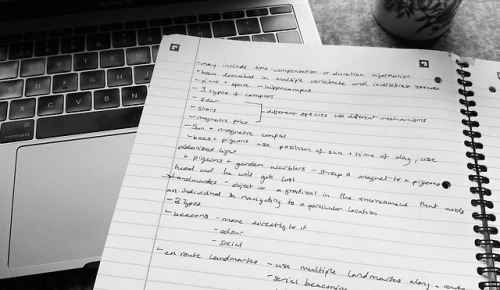 - may include time-compensation or duration information
- been described in multiple vertebrate and invertebrate species
- time + space - hippocampus
- 3 types of compass
- solar
- stars
- different species use different mechanisms
- magnetic poles
- Sun + magnetic compass
- bees + pigeons use position of sun + time of day, use
polarised light
& pigeons + garden warblers - strap a magnet to a pigeons
head and he will get lost
- landmarks - object or a gradient in the environment that aids
an individual in navigating to a particular location
- 2 Types
- beacons - move directly to it
- odour
- social
- en route landmarks - use multiple landmarks along a route
- serial beaconing